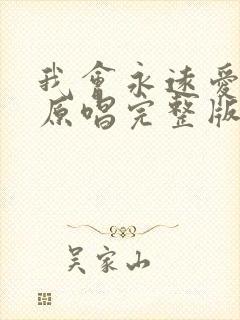 我會永遠愛
原唱完整版
吴家山